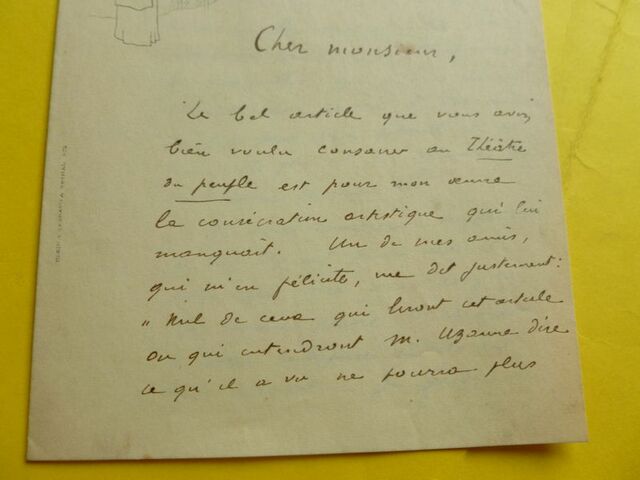 Cher monsieur,
Le bel article que vous avez
bien voulu consacrer au Théâtre
du peuple est pour mon œuvre
la consécration artistique qui lui
manquait. Un de mes amis,
qui m'en félicite, me dit justement :
" Nul de ceux qui liront cet article
ou qui entendront M. Uzanne dire
ce qu'il a vu ne pourra plus